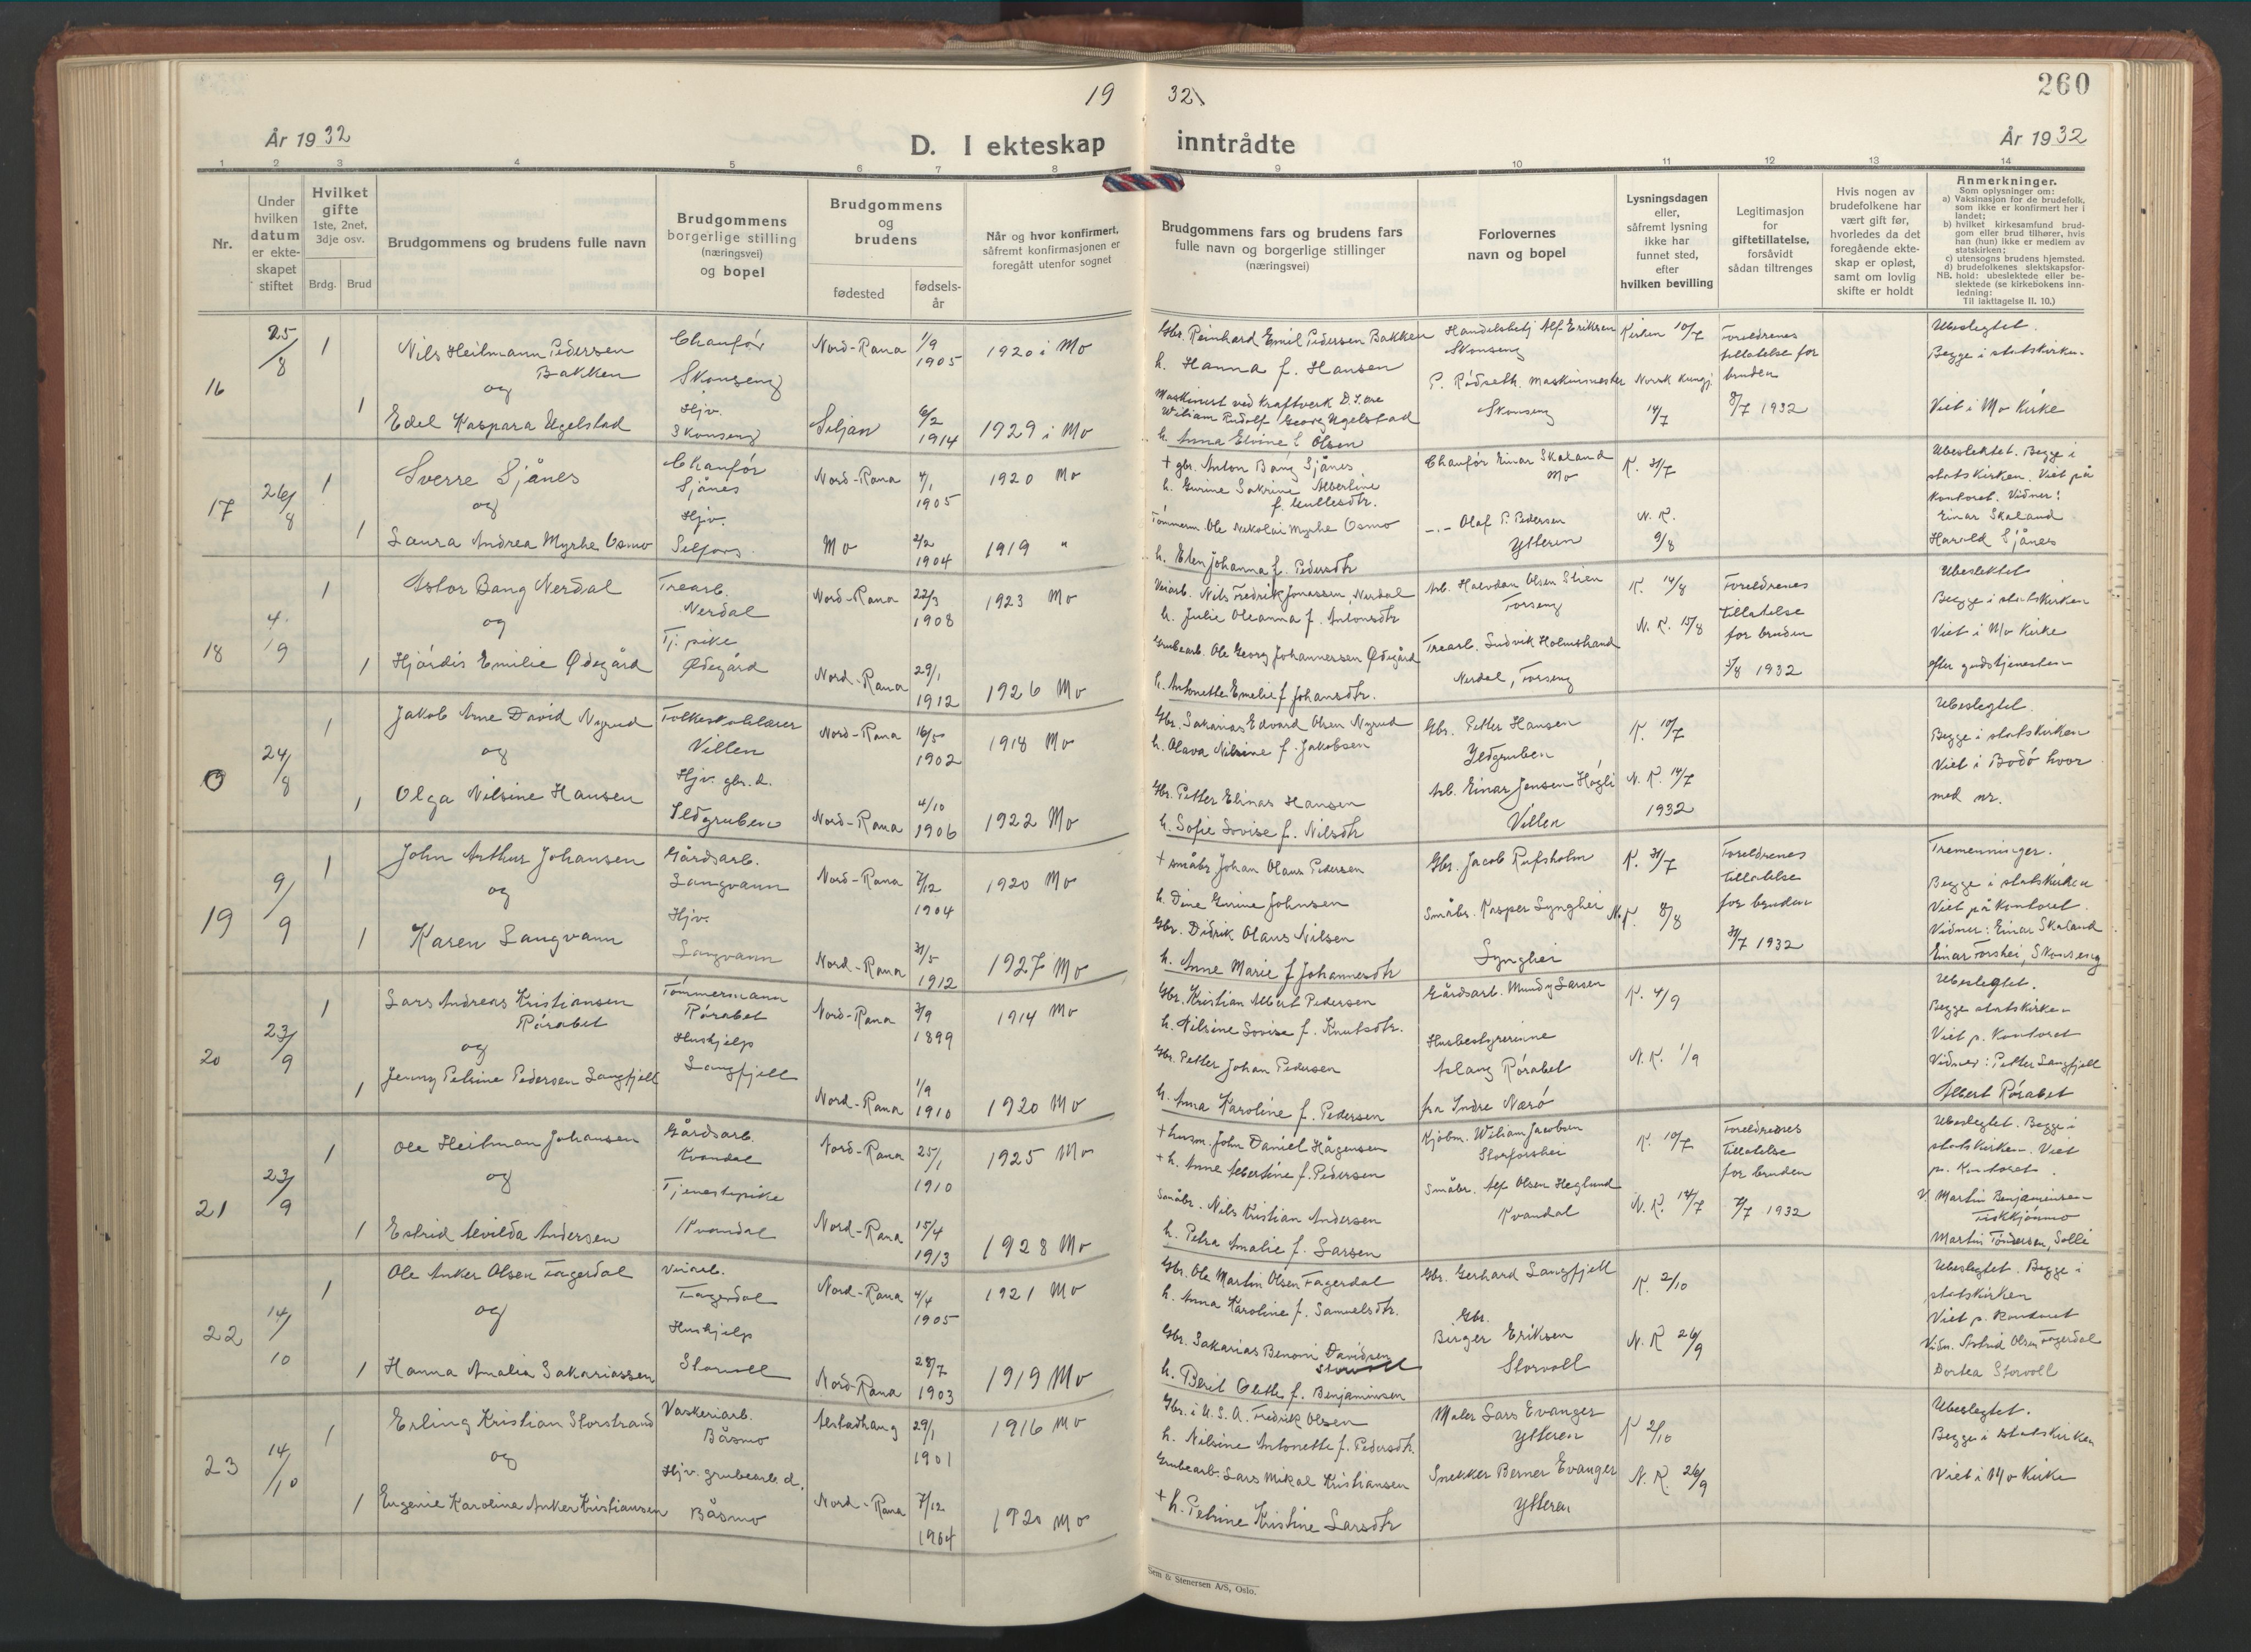 260
19 32
År 1932
D. I ekteskap inntrådte
År 1932
1 2 3 4 5 6 7 8 9 10 11 12 13 14
Nr.
Under hvilken datum er ekteskapet stiftet
Hvilket gifte 1ste, 2net, 3dje osv.
Brdg. Brud
Brudgommens og brudens fulle navn
Brudgommens borgerlige stilling (næringsvei) og bopel
Brudgommens og brudens
fødested
fødselsår
Når og hvor konfirmert, såfremt konfirmasjonen er foregått utenfor sognet
Brudgommens fars og brudens fars fulle navn og borgerlige stillinger (næringsvei)
Forlovernes navn og bopel
Lysningsdagen eller, såfremt lysning ikke har funnet sted, efter hvilken bevilling
Legitimasjon for giftetillatelse, forsåvidt sådan tiltrenges
Hvis nogen av brudefolkene har vært gift før, hvorledes da det foregående ekteskap er opløst, samt om lovlig skifte er holdt
Anmerkninger.
Som oplysninger om:
a) Vaksinasjon for de brudefolk, som ikke er konfirmert her i landet;
b) hvilket kirkesamfund brudgom eller brud tilhører, hvis han (hun) ikke er medlem av statskirken;
c) utensogns brudens hjemsted.
d) brudefolkenes slektskapsforhold: ubeslektede eller beslektede (se kirkebokens innledning:
NB. Til iakttagelse II. 10.)
16 25/8 1 Nils Heitmann Pedersen Bakken
og
1 Edel Kaspara Ugelstad
Chaufør
Skonseng
Hjv.
Skonseng
Nord-Rana 1/9 1905 1920 i Mo
Siljan 6/2 1914 1929 i Mo
Gbr. Reinhard Emil Pedersen Bakken
h. Hanna f. Hansen
Maskinist ved Kraftverk
William Rudolf Georg Ugelstad
h. Anna Elvine f. Olsen
Handelsbetj Alf Eriksen
Skonseng
P. Rødseth. Maskinmester
Skonseng
Kirken 10/7
Norsk Kungj.
14/7
Foreldrenes
tillatelse for
bruden
8/7 1932
Ubeslegtet.
Begge i statskirken
Viet i Mo Kirke
17 26/8 1 Sverre Sjånes
og
1 Laura Andrea Myrhe Osmo
Chaufør
Sjånes
Hjv.
Selfors
Nord-Rana 4/1 1905 1920 Mo
Mo 2/2 1904 1919 "
+ gbr. Anton Bang Sjånes
h. Gurine Sakrine Albertine
Tømmerm. Ole Nikolai Myrhe Osmo
h. Elen Johanna f. Pedersdtr
Chaufør Einar Skaland
Mo
-.- Olaf P. Pedersen
Ytteren
K. 31/7
N. K.
9/8
Ubeslektet. Begge i
statskirken. Viet på
Kontoret. Vidner:
Einar Skaland
Harald Sjånes
18 4/9 1 Astor Bang Nerdal
og
1 Hjørdis Emilie Ødegård
Trearb.
Nerdal
Tj. pike
Ødegård
Nord-Rana 22/3 1908 1923 Mo
Nord-Rana 29/1 1912 1926 Mo
Veiarb. Nils Fredrik Jonassen, Nerdal
h. Julie Oleanna f. Antonsdtr
Grubearb. Ole Georg Johannersen Ødegård
h. Antonette Emelie f Johansdtr.
Arb. Halvdan Olsen Stien
Forseng
Trearb. Ludvik Holmstrand
Nerdal, Forseng
K. 14/8
N. K. 15/8
Foreldrenes
tillatelse
for bruden
5/8 1932
Ubeslektet
Begge i statskirken
Viet i Mo Kirke
efter gudstjenesten
0 24/8 1 Jakob Arne David Nyrud
og
1 Olga Nilsine Hansen
Folkeskolelærer
Villen
Hjv. gbr. d.
Ildgruben
Nord-Rana 16/5 1902 1918 Mo
Nord-Rana 4/10 1906 1922 Mo
Gbr. Sakarias Edvard Olsen Nyrud
h. Olava Nilsine f. Jakobsen
Gbr. Petter Elinas Hansen
h. Sofie Lovise f. Nilsdtr
Gbr. Petter Hansen
Ildgruben
Arb. Einar Jensen Høgli
Villen
K. 10/7
N. K. 14/7
1932
Ubeslegtet.
Begge i statskirken
Viet i Bodø hvor
med nr.
19 9/9 1 John Arthur Johansen
og
1 Karen Langvann
Gårdsarb.
Langvann
Hjv.
Langvann
Nord-Rana 7/12 1904 1920 Mo
Nord-Rana 31/5 1912 1927 Mo
+ småbr. Johan Olaus Pedersen
h. Dine Gurine Johnsen
Gbr. Didrik Olaus Nilsen
h. Anne Marie f Johannesdtr
Gbr. Jacob Rufsholm
Småbr. Kasper Lynghei
Lynghei
K. 31/7
N. K. 8/8
Foreldrenes
tillatelse
for bruden
31/7 1932
Tremenninger.
Begge i statskirken
Viet på Kontoret.
Vidner: Einar Skaland
Einar Forshei, Skonseng
20 23/9 1 Lars Andreas Kristiansen
Rørabet
og
1 Jenny Petrine Pedersen Langfjell
Tømmermann
Rørabet
Huskjelp
Langfjell
Nord-Rana 3/9 1899 1914 Mo
Nord-Rana 1/9 1910 1920 Mo
Gbr. Kristian Albert Pedersen
h. Nilsine Lovise f. Knutsdtr.
Gbr. Petter Johan Pedersen
h. Anna Karoline f. Pedersen
Gårdsarb. Mundy Larsen
Husbestyrerinne
Aslaug Rørabet
fra Indre Nærø
K. 4/9
N. K. 1/9
Ubeslegtet.
Begge statskirken
Viet p. Kontoret
Vidner: Petter Langfjell
Albert Rørabet
21 23/9 1 Ole Heitman Johansen
og
1 Estrid Alvilda Andersen
Gårdsarb.
Kvandal
Tjenestepike
Kvandal
Nord-Rana 25/1 1910 1925 Mo
Nord-Rana 15/4 1913 1928 Mo
+ husm. John Daniel Hågensen
+ h. Anne Albertine f. Pedersen
Småbr. Nils Kristian Andersen
h. Petra Amalie f. Larsen
Kjøbm. William Jacobsen
Storforshei
Småbr. Alf Olsen Heglund
Kvandal
K. 10/7
N. K. 14/7
Foreldrenes
tillatelse
for bruden
7/7 1932
Ubeslegtet. Begge i
statskirken. Viet
p. Kontoret.
V. Martin Benjaminsen
Martin Tøndersen, Solli
22 14/10 1 Ole Anker Olsen Fagerdal
og
1 Hanna Amalia Sakariassen
Veiarb.
Fagerdal
Huskjelp
Storvoll
Nord-Rana 4/4 1905 1921 Mo
Nord-Rana 28/7 1903 1919 Mo
Gbr. Ole Martin Olsen Fagerdal
h. Anna Karoline f. Samuelsdtr.
Gbr. Sakarias Benoni Davidsen
Storvoll
h. Berit Olette f. Benjaminsen
Gbr. Gerhard Langfjell
Gbr.
Birger Eriksen
Storvoll
K 2/10
N. K 26/9
Ubeslegtet. Begge i
statskirken
Viet p. Kontoret
Vidn. Astrid Olsen Fagerdal
Dortea Storvoll
23 14/10 1 Erling Kristian Storstrand
og
1 Eugenie Karolina Anker Kristiansen
Vaskeriarb.
Båsmo
Hjv. grubearb. d.
Båsmo
Alstadhaug 29/1 1901 1916 Mo
Nord-Rana 7/12 1904 1920 Mo
Gbr. i U.S.A. Fredrik Olsen
h. Nilsine Antonette f. Pedersdtr.
Grubearb. Lars Mikal Kristiansen
+ h. Petrine Kristine Larsdtr
Maler Lars Evanger
Ytteren
Snekker Berner Evanger
Ytteren
K 2/10
N. K. 26/9
Ubeslegtet.
Begge i statskirken
Viet i Mo Kirke
Sem & Stenersen A/S, Oslo.